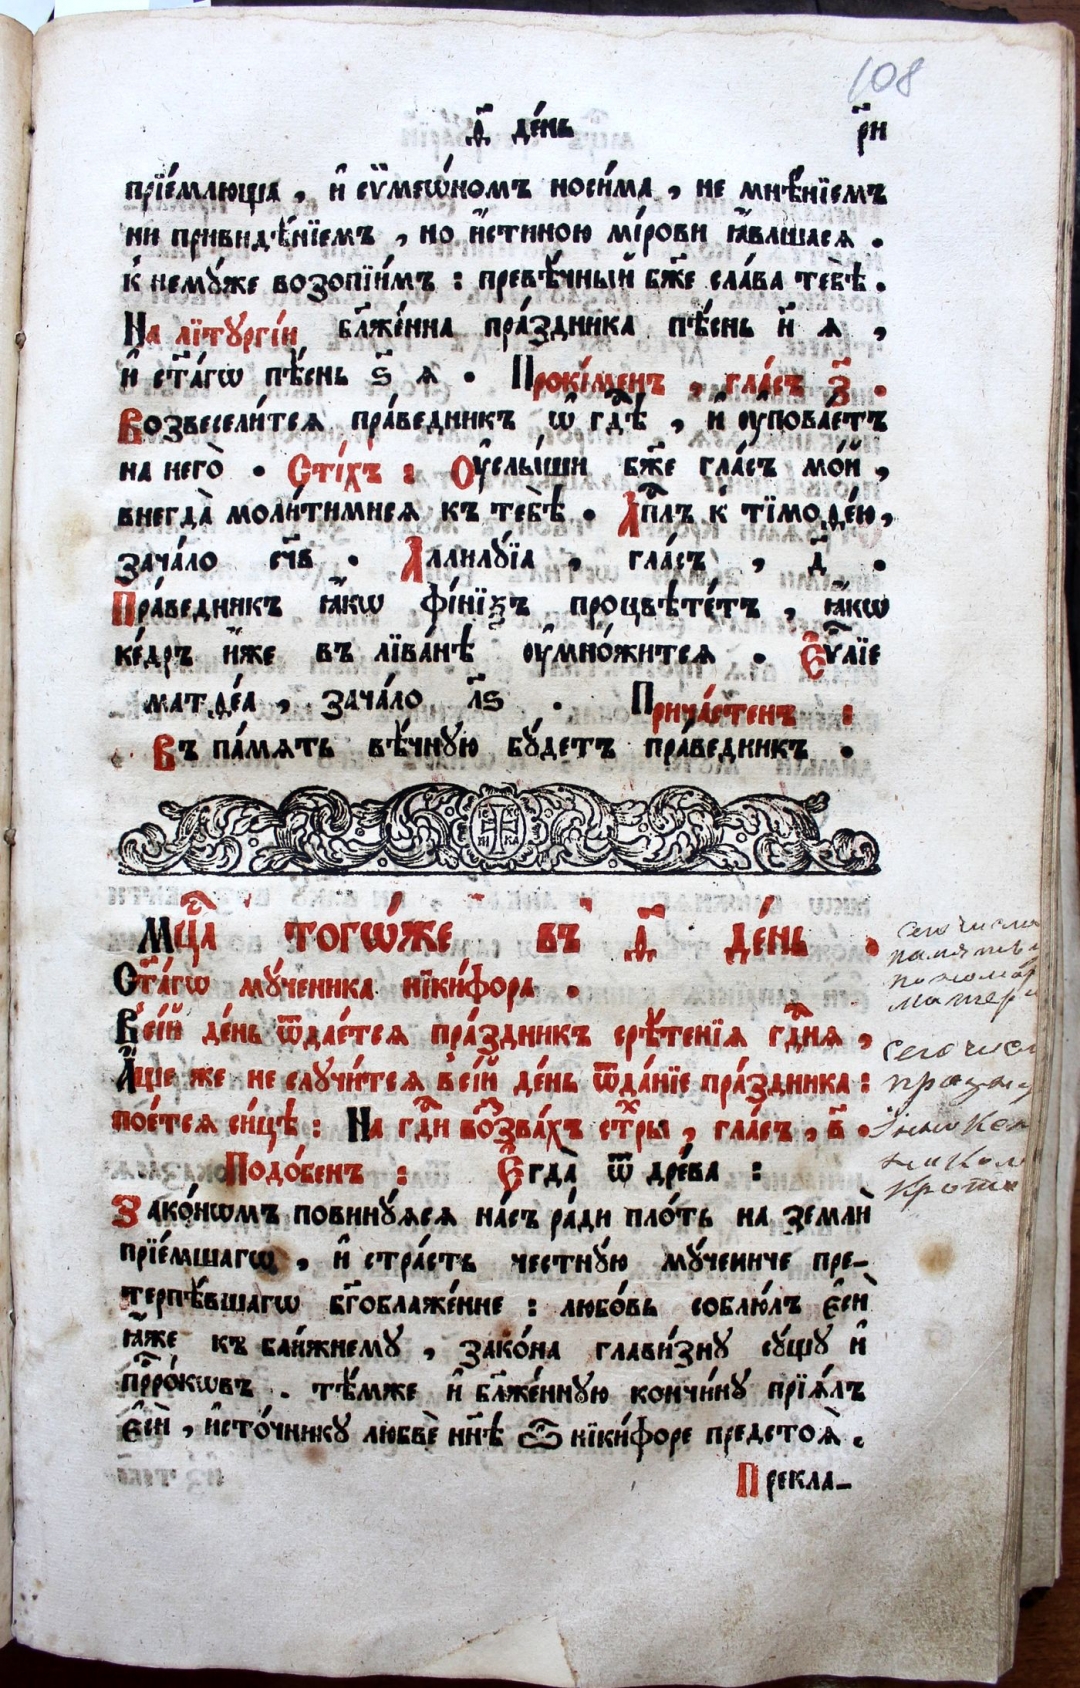 108
ѳ҃ де́нь р҃и
прїе́млюща , и҆ сѷмеѡ́номъ носи́ма , не мнѣ́нїемъ
ни привидѣ́нїемъ , но и҆́стиною мі́рови ꙗ҆́вльшася .
к немꙋ́же возопїи́мъ : превѣ́чный бж҃е сла́ва тебѣ̀ .
На лїтꙋргі́и бл҃же́нна пра́здника пѣ́снь и҃ ѧ ,
и҆ ст҃а́гѡ пѣ́снь ѕ҃ ѧ . Проки́менъ , гла́съ з҃ .
Возвесели́тся пра́ведникъ ѡ҆ гдⷭ҇ѣ , и҆ ᲂу҆пова́етъ
на него̀ . Сті́хъ : Оу҆слы́ши бж҃е гла́съ мо́й ,
внегда̀ моли́тимися къ тебѣ̀ . А҆пⷭ҇лъ к тїмоѳе́ю ,
зача́ло сч҃в . А҆ллилꙋ́їа , гла́съ , д҃ .
Пра́ведникъ ꙗ҆́кѡ фі́нїѯъ процвѣте́тъ , ꙗ҆́кѡ
ке́дръ и҆́же въ лїва́нѣ ᲂу҆мно́жится . Є҆ѵⷢ҇лїе
матѳе́а , зача́ло л҃ѕ . Прича́стенъ :
Въ па́мять вѣ́чнꙋю бꙋ́детъ пра́ведникъ .
І҃С Х҃С НИ КА
Мцⷭ҇а тогѡ́же въ ѳ҃ де́нь .
Ст҃а́гѡ мꙋ́ченика нїки́фора .
Всі́й де́нь ѿдае́тся пра́здникъ срѣ́тенїя гдⷭ҇ня ,
А҆́ще же не слꙋчи́тся всі́й де́нь ѿда́нїе пра́здника :
пое́тся си́цѣ : На гдⷭ҇и во́зва́хъ стⷯры , гла́съ , в҃ .
Подо́бенъ : Є҆гда̀ ѿ дре́ва :
Зако́нѡмъ повинꙋ́яся на́съ ра́ди пло́ть на землѝ
прїе́мшагѡ , и҆ стра́сть честнꙋ́ю мꙋ́чениче пре-
терпѣ́вшагѡ бг҃облаже́нне : любо́вь соблю́лъ є҆сѝ
ꙗ҆́же къ бли́жнемꙋ , зако́на глави́знꙋ сꙋ́щꙋ и҆
прⷪ҇ро́кѡвъ . тѣ́мже и҆ бл҃же́ннꙋю кончи́нꙋ прїя́лъ
є҆сѝ , и҆сто́чникꙋ любвѐ нн҃ѣ ѽ нїки́форе предстоя̀ .
Прекла-
сего числа
память
матери
сего числ